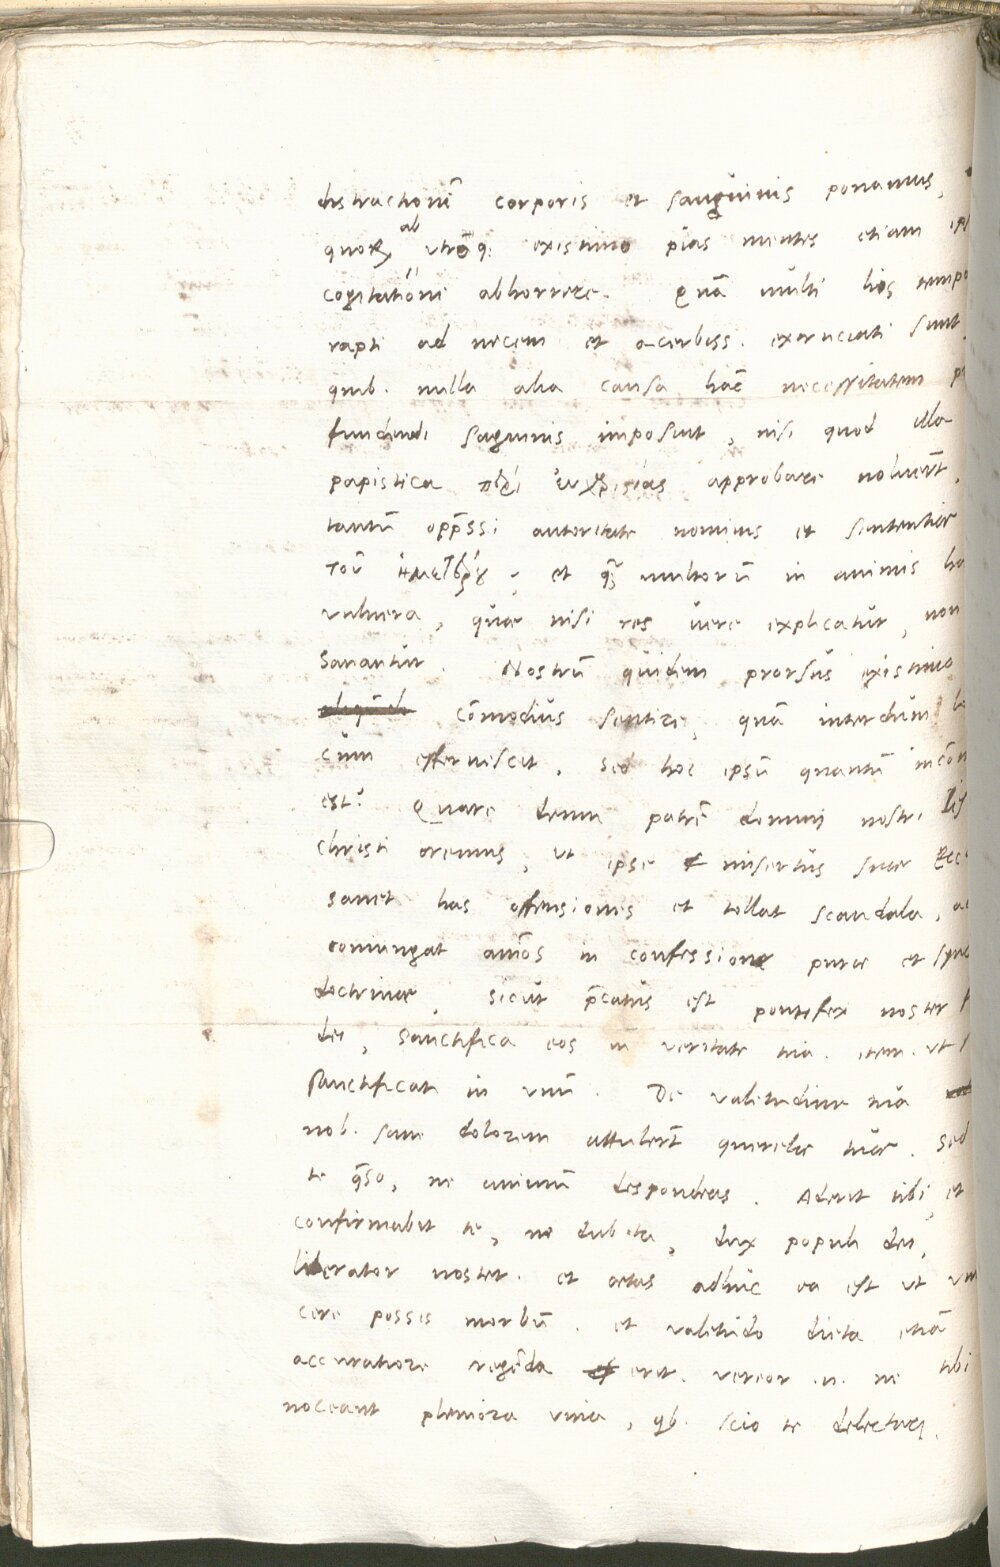 distractionē corporis et sanguinis ponamus,
quorꝫ ab utroq. existimo pias mentes etiam
cogitatione abhorrere. Quā multi his tempo
rapti ad necem et acerbiss. excruciati sunt
quib. nulla alia causa hāc necessitatem
fundendi saguinis imposuit, nisi quod illa
papistica approbare noluerūt.
tantū opp̄ssi autoritate nominis et sententiae
τοῦ ἡμετέρου, et multorū in animis
vulnera, quae nisi res vere explicatur, non
sanantur. Nostrū quidem prorsus existimo
cōmodius sentire, quā interdum
cum efferuescit. sed hoc ipsū quantū
est? Quare deum patrē domini nostri
christi oremus, ut ipse misertus suae
sanet has offensiones et tollat scandala,
coniungat aīōs in confessione purae et
doctrinae, sicut p̄catus est pontifex noster
dei, Sanctifica eos in veritate tua. item. ut
sanctificati in unū. De valetudine tua
nob. sane dolorem attulerūt querelae tuae. sed
te q̄so, ne animū despondeas. Aderit tibi, et
confirmabit te, ne dubita, dux populi dei,
liberator noster. et aetas adhuc ea est ut
cere possis morbū. et valetudo dieta etiā
accuratiore regēda erit. vereor .n. ne tibi
noceant pleniora vina, qb. scio te delectari.